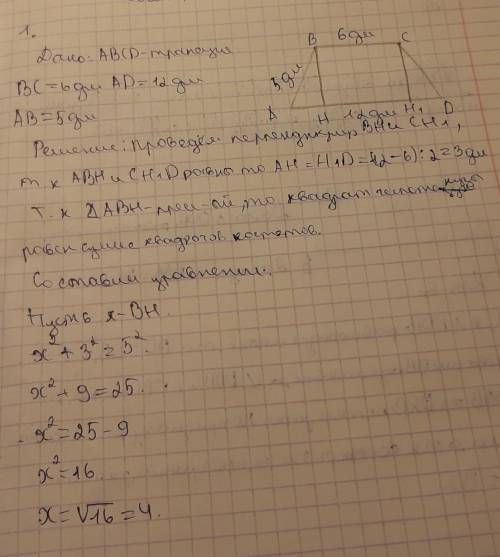 1.
Дано: ABCD-трапеция
BC=6дм AD=12дм
AB=5дм
B 6дм C
5дм
A H 12дм H₁ D
Решение: Проведём перпендикуляр BH и CH1,
т.к ABH и CH1D равны то AH=H1D=(12-6):2=3дм
Т.к ΔABH-прям-ой, то квадрат гипотенузы
равен сумме квадратов катетов.
Составим уравнение.
Пусть x-BH.
x²+3²=5².
x²+9=25.
x²=25-9
x²=16.
x=√16=4.